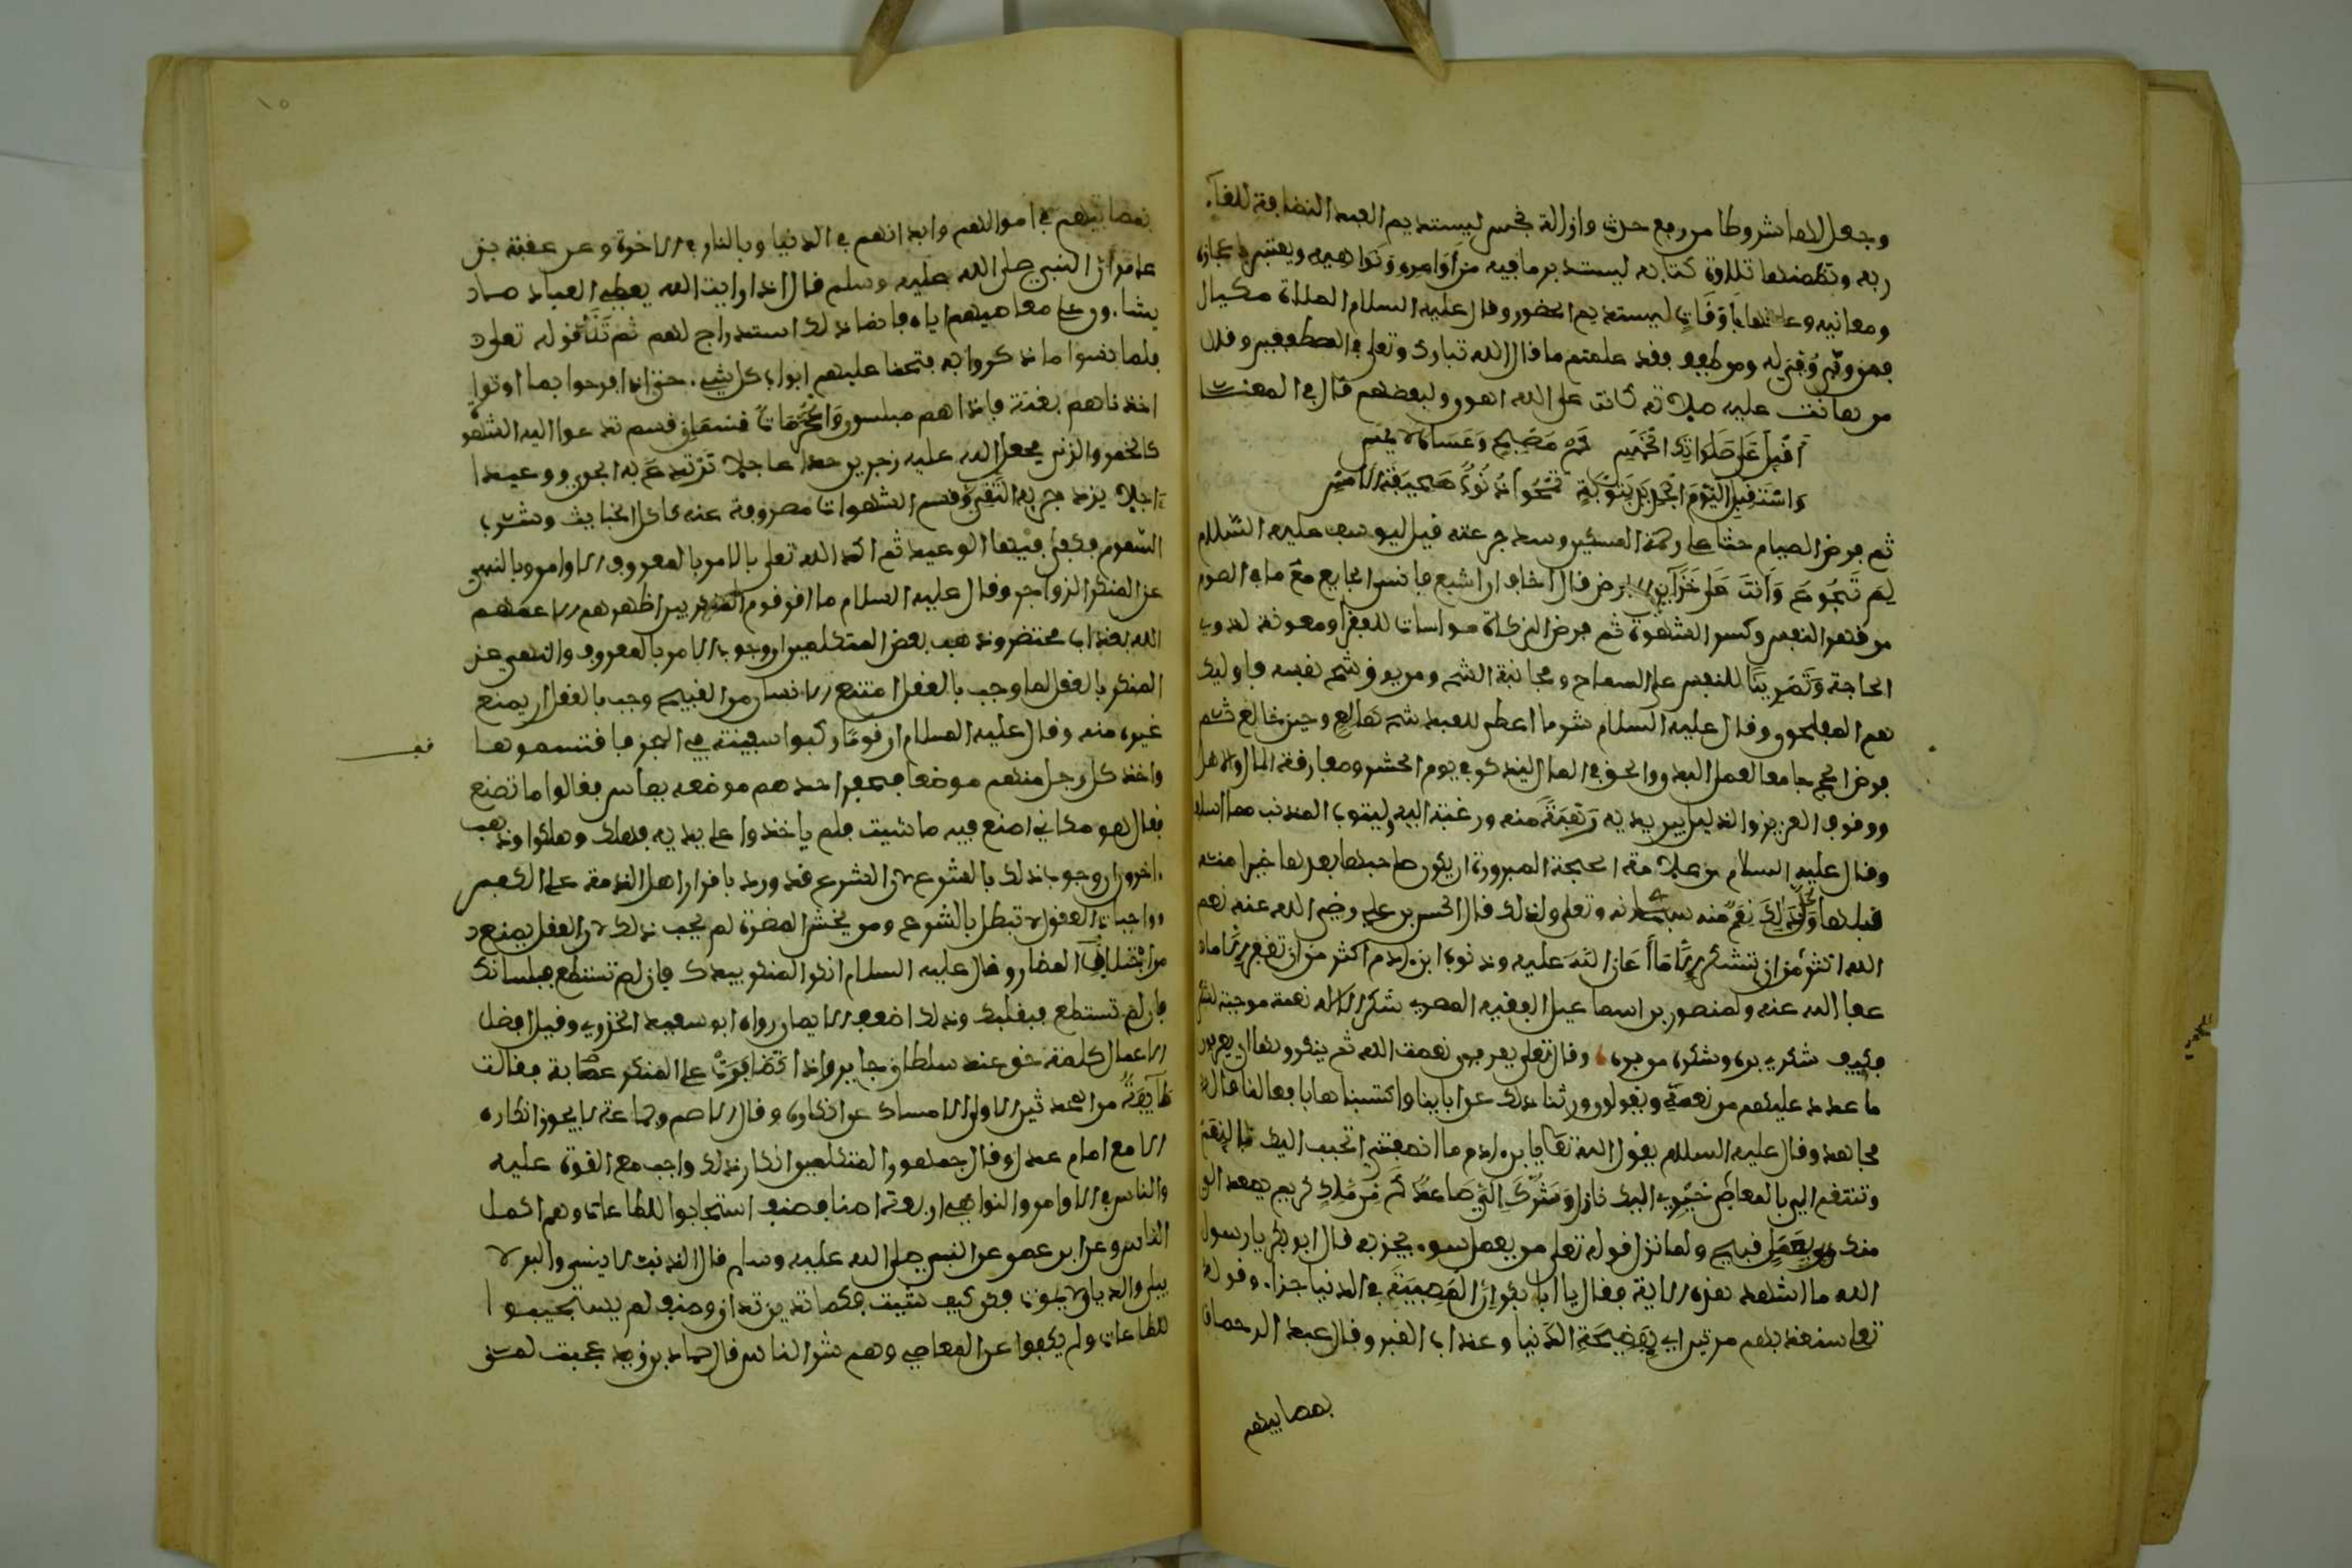 وجعل لها شروطا من رفع حدث وازالة نجس ليستديم العبد النظافة للقاء
ربه وتضمنها تلاوة كتابه ليستدبر ما فيه من اوامره ونواهيه ويعتبر باعجازه
ومعانيه وعلقها باوقات ليستديم الحضور وقال عليه السلام الصلاة مكيال
فمن وفى وفي له ومن طفف فقد علمتم ما قال الله تبارك وتعلى في المطففين وقال
من هانت عليه صلاته كانت على الله اهون ولبعضهم قال في المعنى
اقبل على صلواتك الخمس كم مصبح وعساه لا يمسي
واستقبل اليوم الجديد بتوبة تمحوا ذنوب صحيفة الامس
ثم فرض الصيام حثا على رحمة المسكين وسد جوعته قيل ليوسف عليه السلام
لم تجوع وانت على خزاين الارض قال اخاف ان اشبع فانسى الجايع مع ما في الصوم
من قهر النفس وكسر الشهوة ثم فرض الزكاة مواسات للفقرا ومعونة لذوي
الحاجة وتمرينا للنفس على السماح ومجانبة الشح ومن يوق شح نفسه فاوليك
هم المفلحون وقال عليه السلام شر ما اعطى للعبد شح هالع وجبن خالع ثم
فرض الحج جامعا لعمل البدن والحق في المال ليذكر في يوم الحشر ومفارقة المال والاهل
ووقوف العزيز والذليل بين يديه رهبة منه ورغبة اليه وليتوب المذنب مما اسلف
وقال عليه السلام من علامة الحجة المبرورة ان يكون صاحبها بعدها خيرا منه
قبلها وكل ذلك نعم منه سبحانه وتعلى ولذلك قال الحسن بن علي رضي الله عنه نعم
الله اكثر من ان تشكر الا ما اعان الله عليه وذنوب ابن ءادم اكثر من ان تغفر الا ما
عفا الله عنه ولمنصور بن اسماعيل الفقيه المصري شكر الاله نعمة موجبة لشكره
فكيف شكري بره وشكره من بره وقال تعلى يعرفون نعمت الله ثم ينكرونها اي يعرفون
ما عدد عليهم من نعمه ويقولون ورثنا ذلك عن اباينا واكتسبناها بافعالنا قاله
مجاهد وقال عليه السلام يقول الله تعالى يا بن ءادم ما انصفتني اتحبب اليك بالنعم
وتتمقت الي بالمعاصي خيري اليك نازل وشرك الي صاعد كم من ملك كريم يصعد الي
منك بعمل قبيح ولما نزل قوله تعلى من يعمل سوءا يجز به قال ابو بكر يا رسول
الله ما اشد هذه الاية فقال يا ابا بكر ان المصيبة في الدنيا جزاء وقوله
تعلى سنعذبهم مرتين اي بفضيحة الدنيا وعذاب القبر وقال عبد الرحمان
بمصايبهم
بمصايبهم في اموالهم وابدانهم في الدنيا وبالنار في الاخرة وعن عقبة بن
عامر ان النبي صلى الله عليه وسلم قال اذا رايت الله يعطي العباد ما
يشاءون على معاصيهم اياه فانما ذلك استدراج لهم ثم تلا قوله تعلى
فلما نسوا ما ذكروا به فتحنا عليهم ابواب كل شيء حتى اذا فرحوا بما اوتوا
اخذناهم بغتة فاذا هم مبلسون والمحرمات قسمان قسم تدعوا اليه الشهوة
كالخمر والزنى فجعل الله عليه زجرين حدا عاجلا ترتدع به الجوارح ووعيدا
ءاجلا يزدجر به التقي وقسم الشهوات مصروفة عنه كاكل الخبايث وشرب
السموم فكفى فيها الوعيد ثم اكد الله تعلى بالامر بالمعروف الاوامر وبالنهي
عن المنكر الزواجر وقال عليه السلام ما اقر قوم المنكر بين اظهرهم الا عمهم
الله بعذاب محتضر وذهب بعض المتكلمين ان وجوب الامر بالمعروف والنهي عن
المنكر بالعقل لما وجب بالعقل امتنع الانسان من القبيح وجب بالعقل ان يمنع
غيره منه وقال عليه السلام ان قوما ركبوا سفينة في البحر فاقتسموها
واخذ كل رجل منهم موضعا فحفر احدهم موضعه بفاس فقالوا ما تصنع
فقال هو مكاني اصنع فيه ما شيت فلم ياخذوا على يديه فهلك وهلكوا وذهب
ءاخرون ان وجوب ذلك بالشرع لان الشرع قد ورد باقرار اهل الذمة على الكفر
وواجبات العقول لا تبطل بالشرع ومن يخش المضرة لم يجب ذلك لان العقل يمنع
من اجتلاب المضار وقال عليه السلام انكر المنكر بيدك فان لم تستطع فبلسانك
فان لم تستطع فبقلبك وذلك اضعف الايمان رواه ابو سعيد الخدري وقيل افضل
الاعمال كلمة حق عند سلطان جاير واذا تضافرت على المنكر عصابة فقالت
طايفة من المحدثين الاولى الامساك عن انكاره وقال الاصم وجماعة لا يجوز انكاره
الا مع امام عدل وقال جمهور المتكلمين انكار ذلك واجب مع القوة عليه
والناس في الاوامر والنواهي اربعة اصناف صنف استجابوا للطاعات وهم اكمل
الناس وعن ابن عمر عن النبي صلى الله عليه وسلم قال الذنب لا ينسى والبر لا
يبلى والديان لا يموت فكن كيف شيت فكما تدين تدان وصنف لم يستجيبوا
للطاعات ولم يكفوا عن المعاصي وهم شر الناس قال حماد بن زيد عجبت لمن